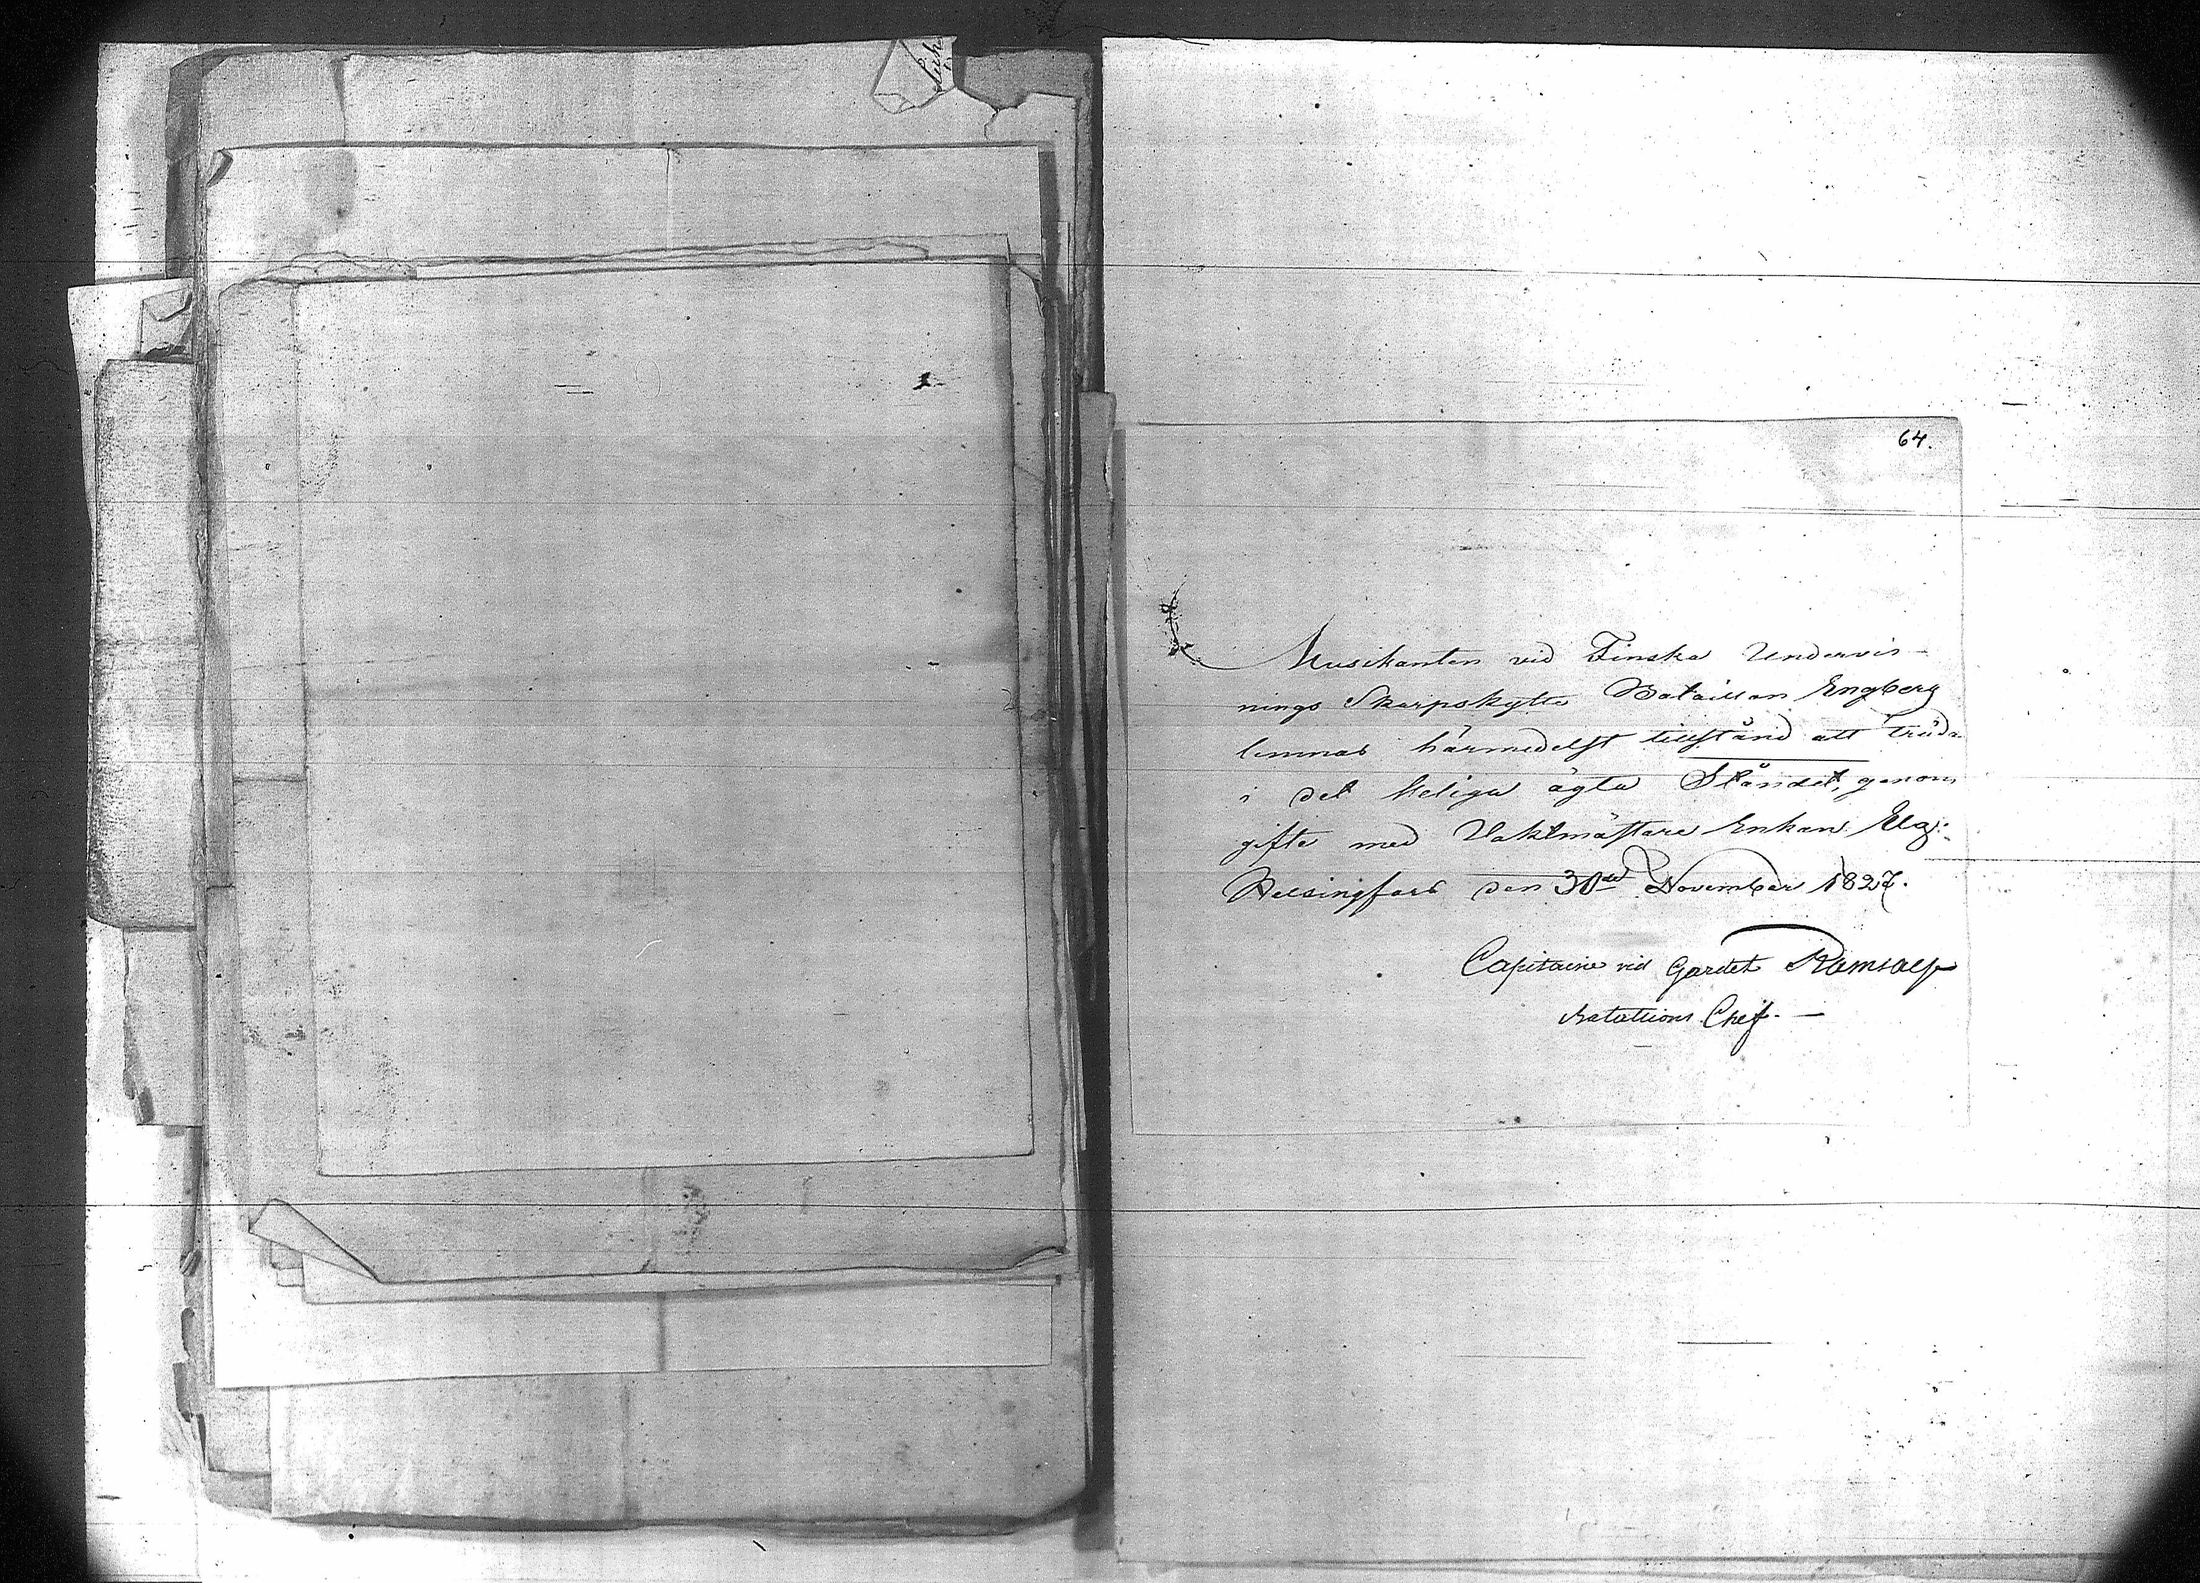 64.
Musikanten vid Finska Undervis-
nings Skarpskytte Bataillon Engberg
lemnas härmedelst tillstånd att träda
i det heliga ägta Ståndet, genom
gifte med Vaktmästare Enkan Elg:
Helsingfors den 30de November 1827.
Capitaine vid Gardet Ramsay
Bataillions Chef. —